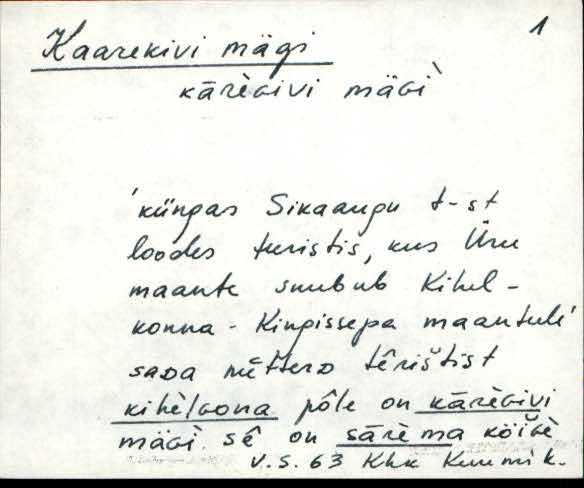 1
Kaarekivi mägi
kārèɢivi mäɢì
'küngas Sikaaugu t-st
loodes teeristis, kus Üru
maante suubub Kihel-
konna - Kingissepa maanteele'
saᴅa mētterᴅ têrištist
kihèlɢona pōle on kārèɢivi
mäɢì. sê on sārè ma
V.S. 63 Khk Kuumi k.